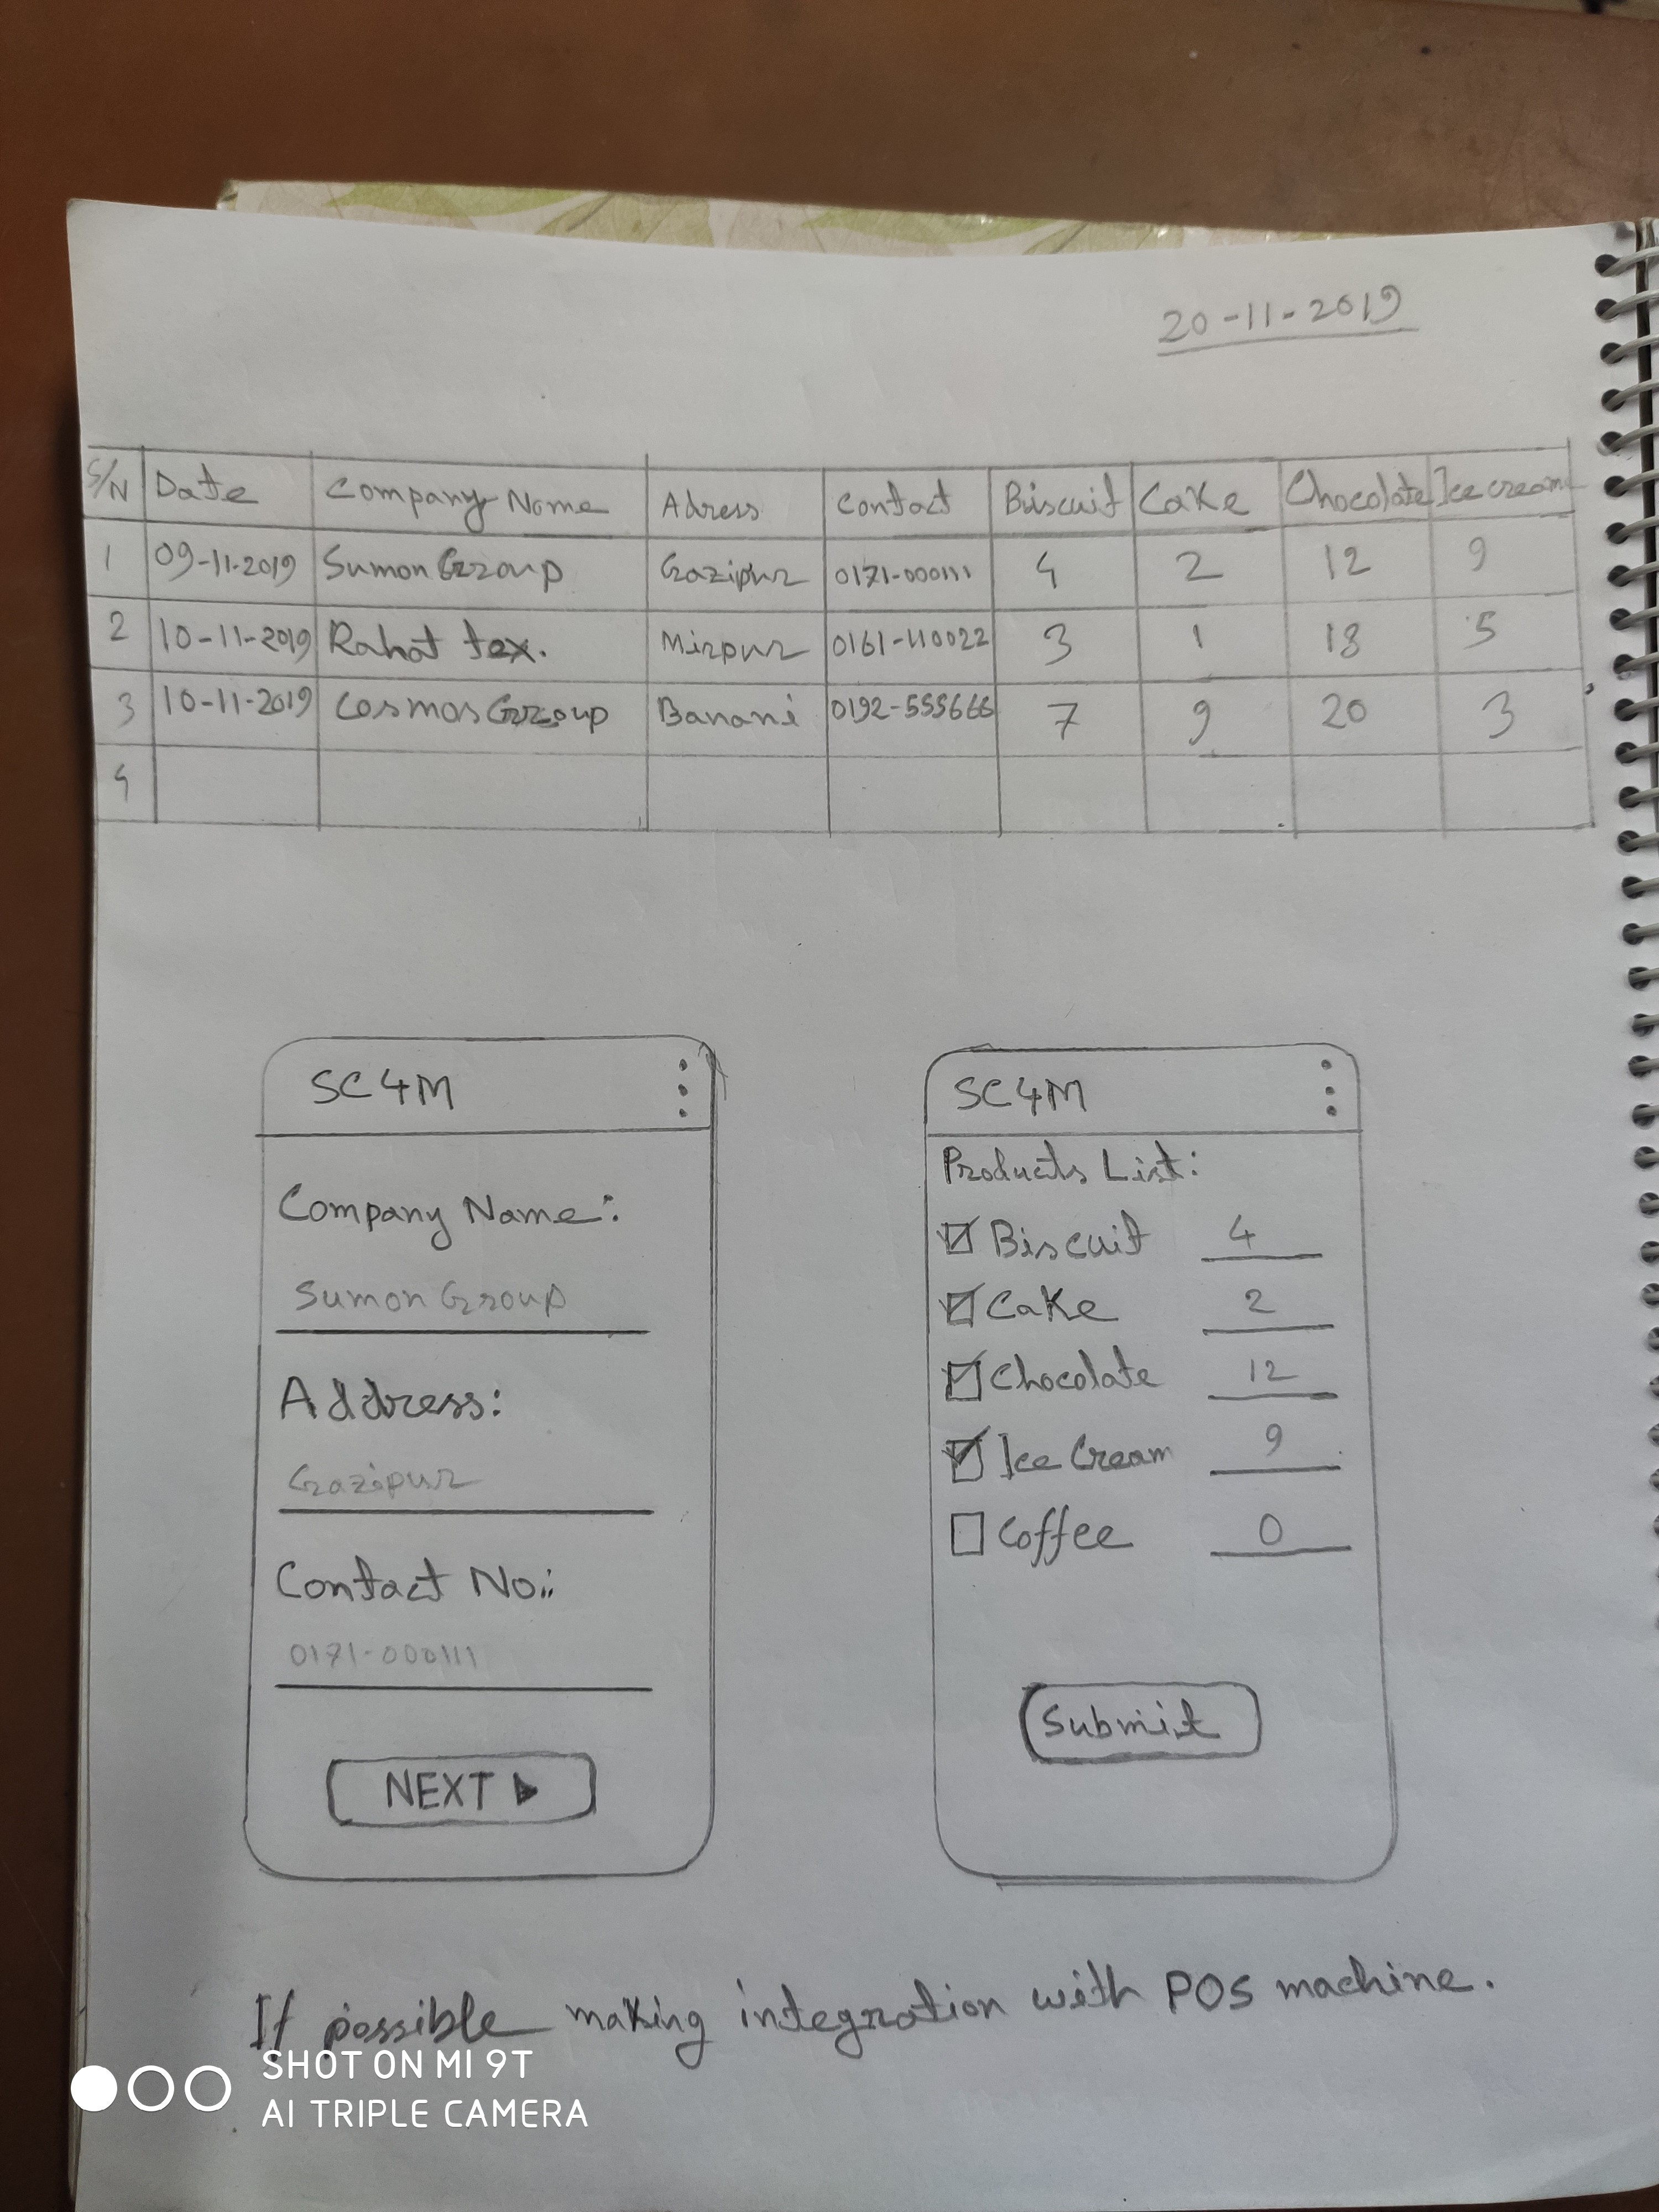 20-11-2019
S/N Date Company Name Adress Contact Biscuit Cake Chocolate Ice cream
1 09-11-2019 Sumon Group Gazipur 0171-000111 4 2 12 9
2 10-11-2019 Rahat tex. Mirpur 0161-110022 3 1 18 5
3 10-11-2019 Cosmos Group Banani 0192-555666 7 9 20 3
4
SC4M
Company Name:
Sumon Group
Address:
Gazipur
Contact No.:
0171-000111
NEXT ▶
SC4M
Products List:
Biscuit 4
Cake 2
Chocolate 12
Ice Cream 9
Coffee 0
Submit
If possible making integration with POS machine.
SHOT ON MI 9T
AI TRIPLE CAMERA